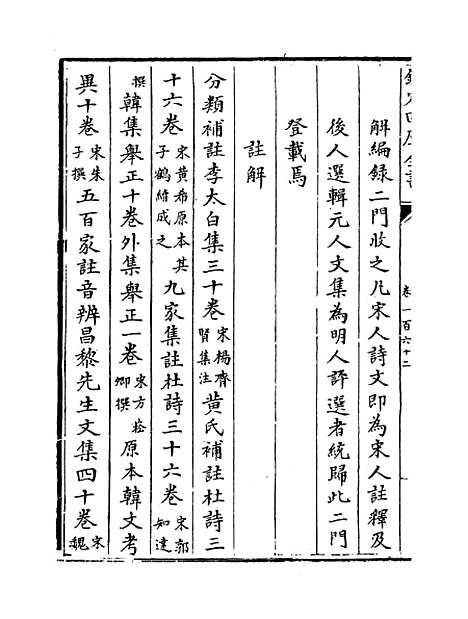 卷一百六十二
解編録二門收之凡宋人詩文即為宋人註釋及
後人選輯元人文集為明人評選者統歸此二門
登載焉
註解
分類補註李太白集三十卷宋楊齊賢集注黄氏補註杜詩三
十六卷宋黄希原本其子鶴續成之九家集註杜詩三十六卷宋郭知達
撰韓集舉正十卷外集舉正一卷宋方崧卿撰原本韓文考
異十卷宋朱子撰五百家註音辨昌黎先生文集四十卷宋魏